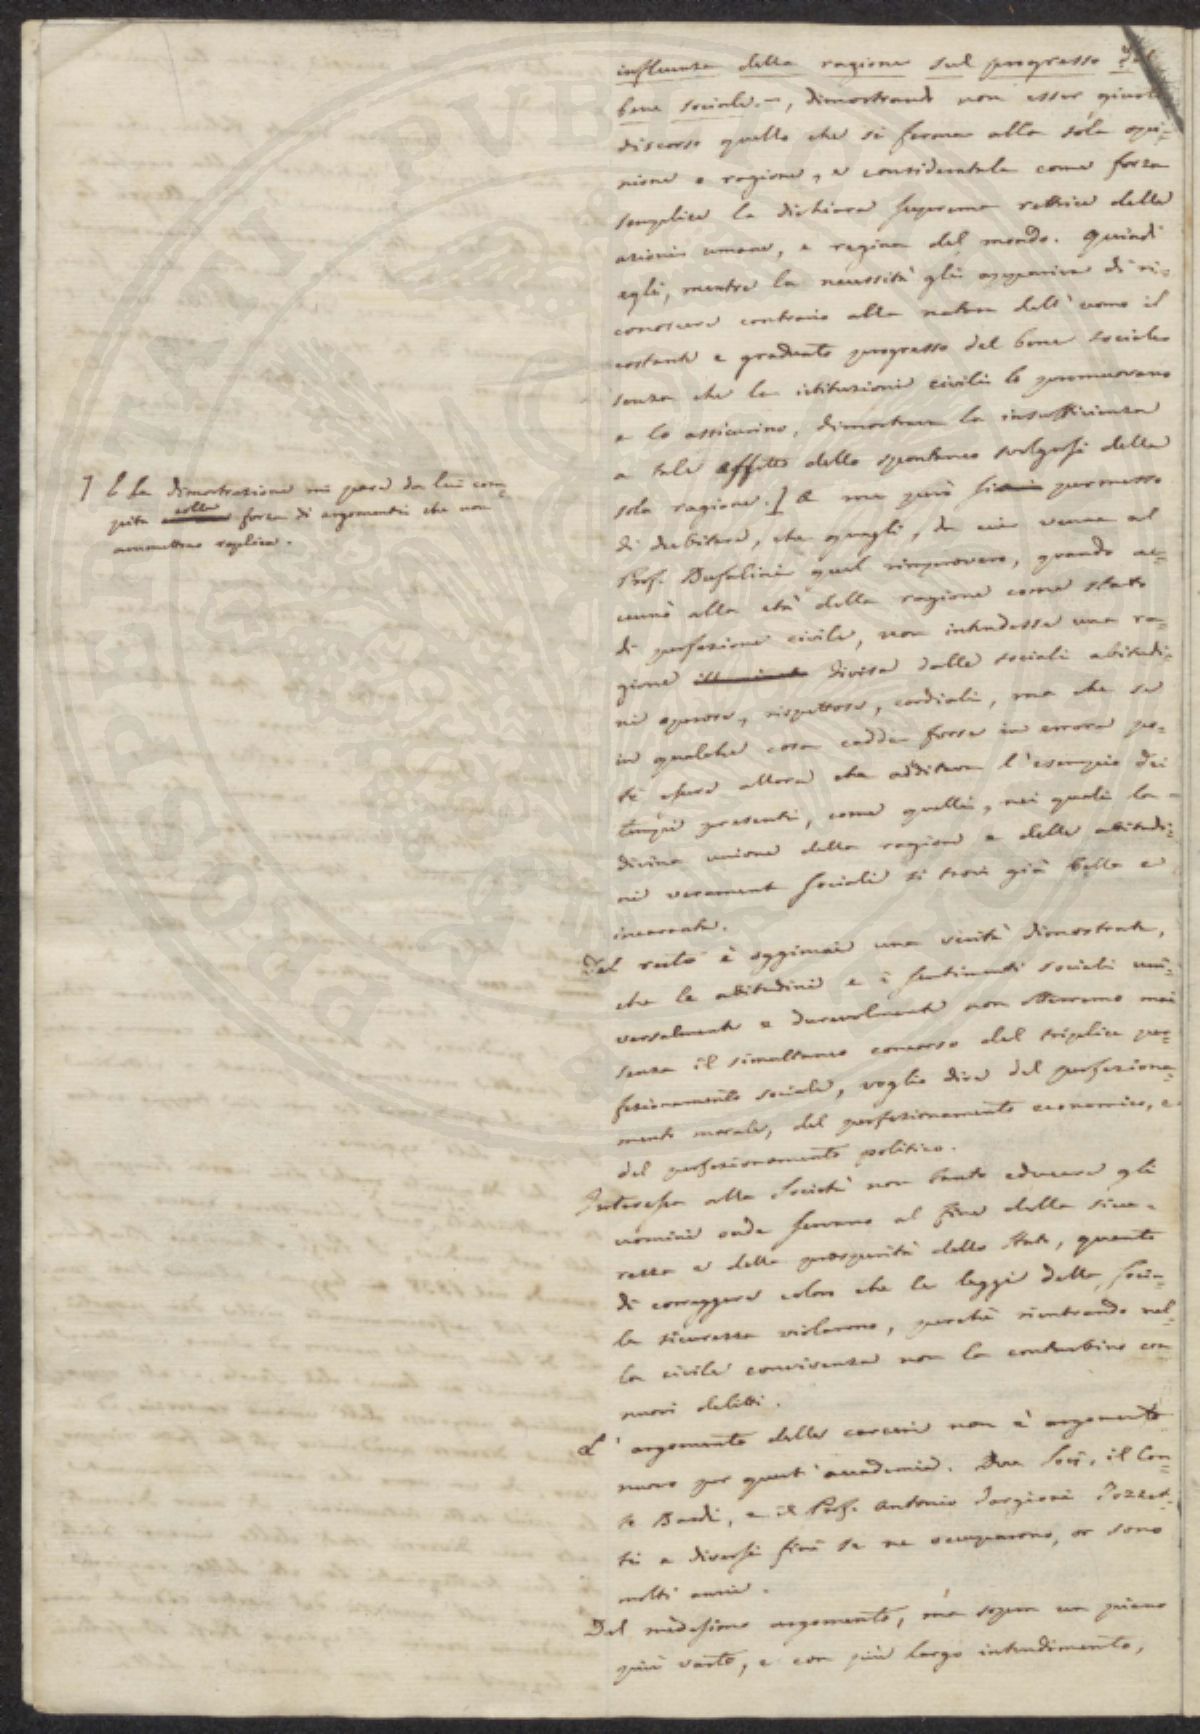 influenza della ragione sul progresso del
bene sociale =, dimostrando non esser giusto
discorso quello che si ferma alla sola opi-
nione e ragione, e consideratala come forza
semplice la dichiara suprema rettrice delle
azioni umane, e regina del mondo. Quindi
egli, mentre la necessità gli appariva di ri-
conoscere contrario alla natura dell'uomo il
costante e graduato progresso del bene sociale
senza che le istituzioni civili lo promuovano
e lo assicurino, dimostrava la insufficienza
a tale effetto dello spontaneo svolgersi della
sola ragione.] A me però permesso
di dubitare, che quegli, da cui venne al
Prof. Bufalini quel rimprovero, quando ac-
cennò alla età della ragione come stato
di perfezione civile, non intendesse una ra-
gione divisa dalle sociali abitudi-
ni operose, rispettose, cordiali, ma che se
in qualche cosa cadde forse in errore po-
té essere allora che additava l'esempio dei
tempi presenti, come quelli, nei quali la
divina unione della ragione e delle abitudi-
ni veramente sociali si trovi già bella e
incarnata.
Del resto è oggimai una verità dimostrata,
che le abitudini e i sentimenti sociali uni-
versalmente e durevolmente non otterremo mai
senza il simultaneo concorso del triplice per-
fezionamento sociale, voglio dire del perfeziona-
mento morale, del perfezionamento economico, e
del perfezionamento politico.
Interessa alla Società non tanto educare gli
uomini onde servano al fine della sicu-
rezza e della prosperità dello Stato, quanto
di correggere coloro che le leggi della socia-
le sicurezza violarono, perché rientrando nel-
la civile convivenza non la conturbino con
nuovi delitti.
L'argomento delle carceri non è argomento
nuovo per quest'accademia. Due Socj, il Con-
te Bardi, e il Prof. Antonio Targioni Tozzet-
ti a diversi fini se ne occuparono, or sono
molti anni.
Del medesimo argomento, ma sopra un piano
più vasto, e con più largo intendimento,
] E la dimostrazione mi pare da lui com-
pita colla forza di argomenti che non
ammettono replica.